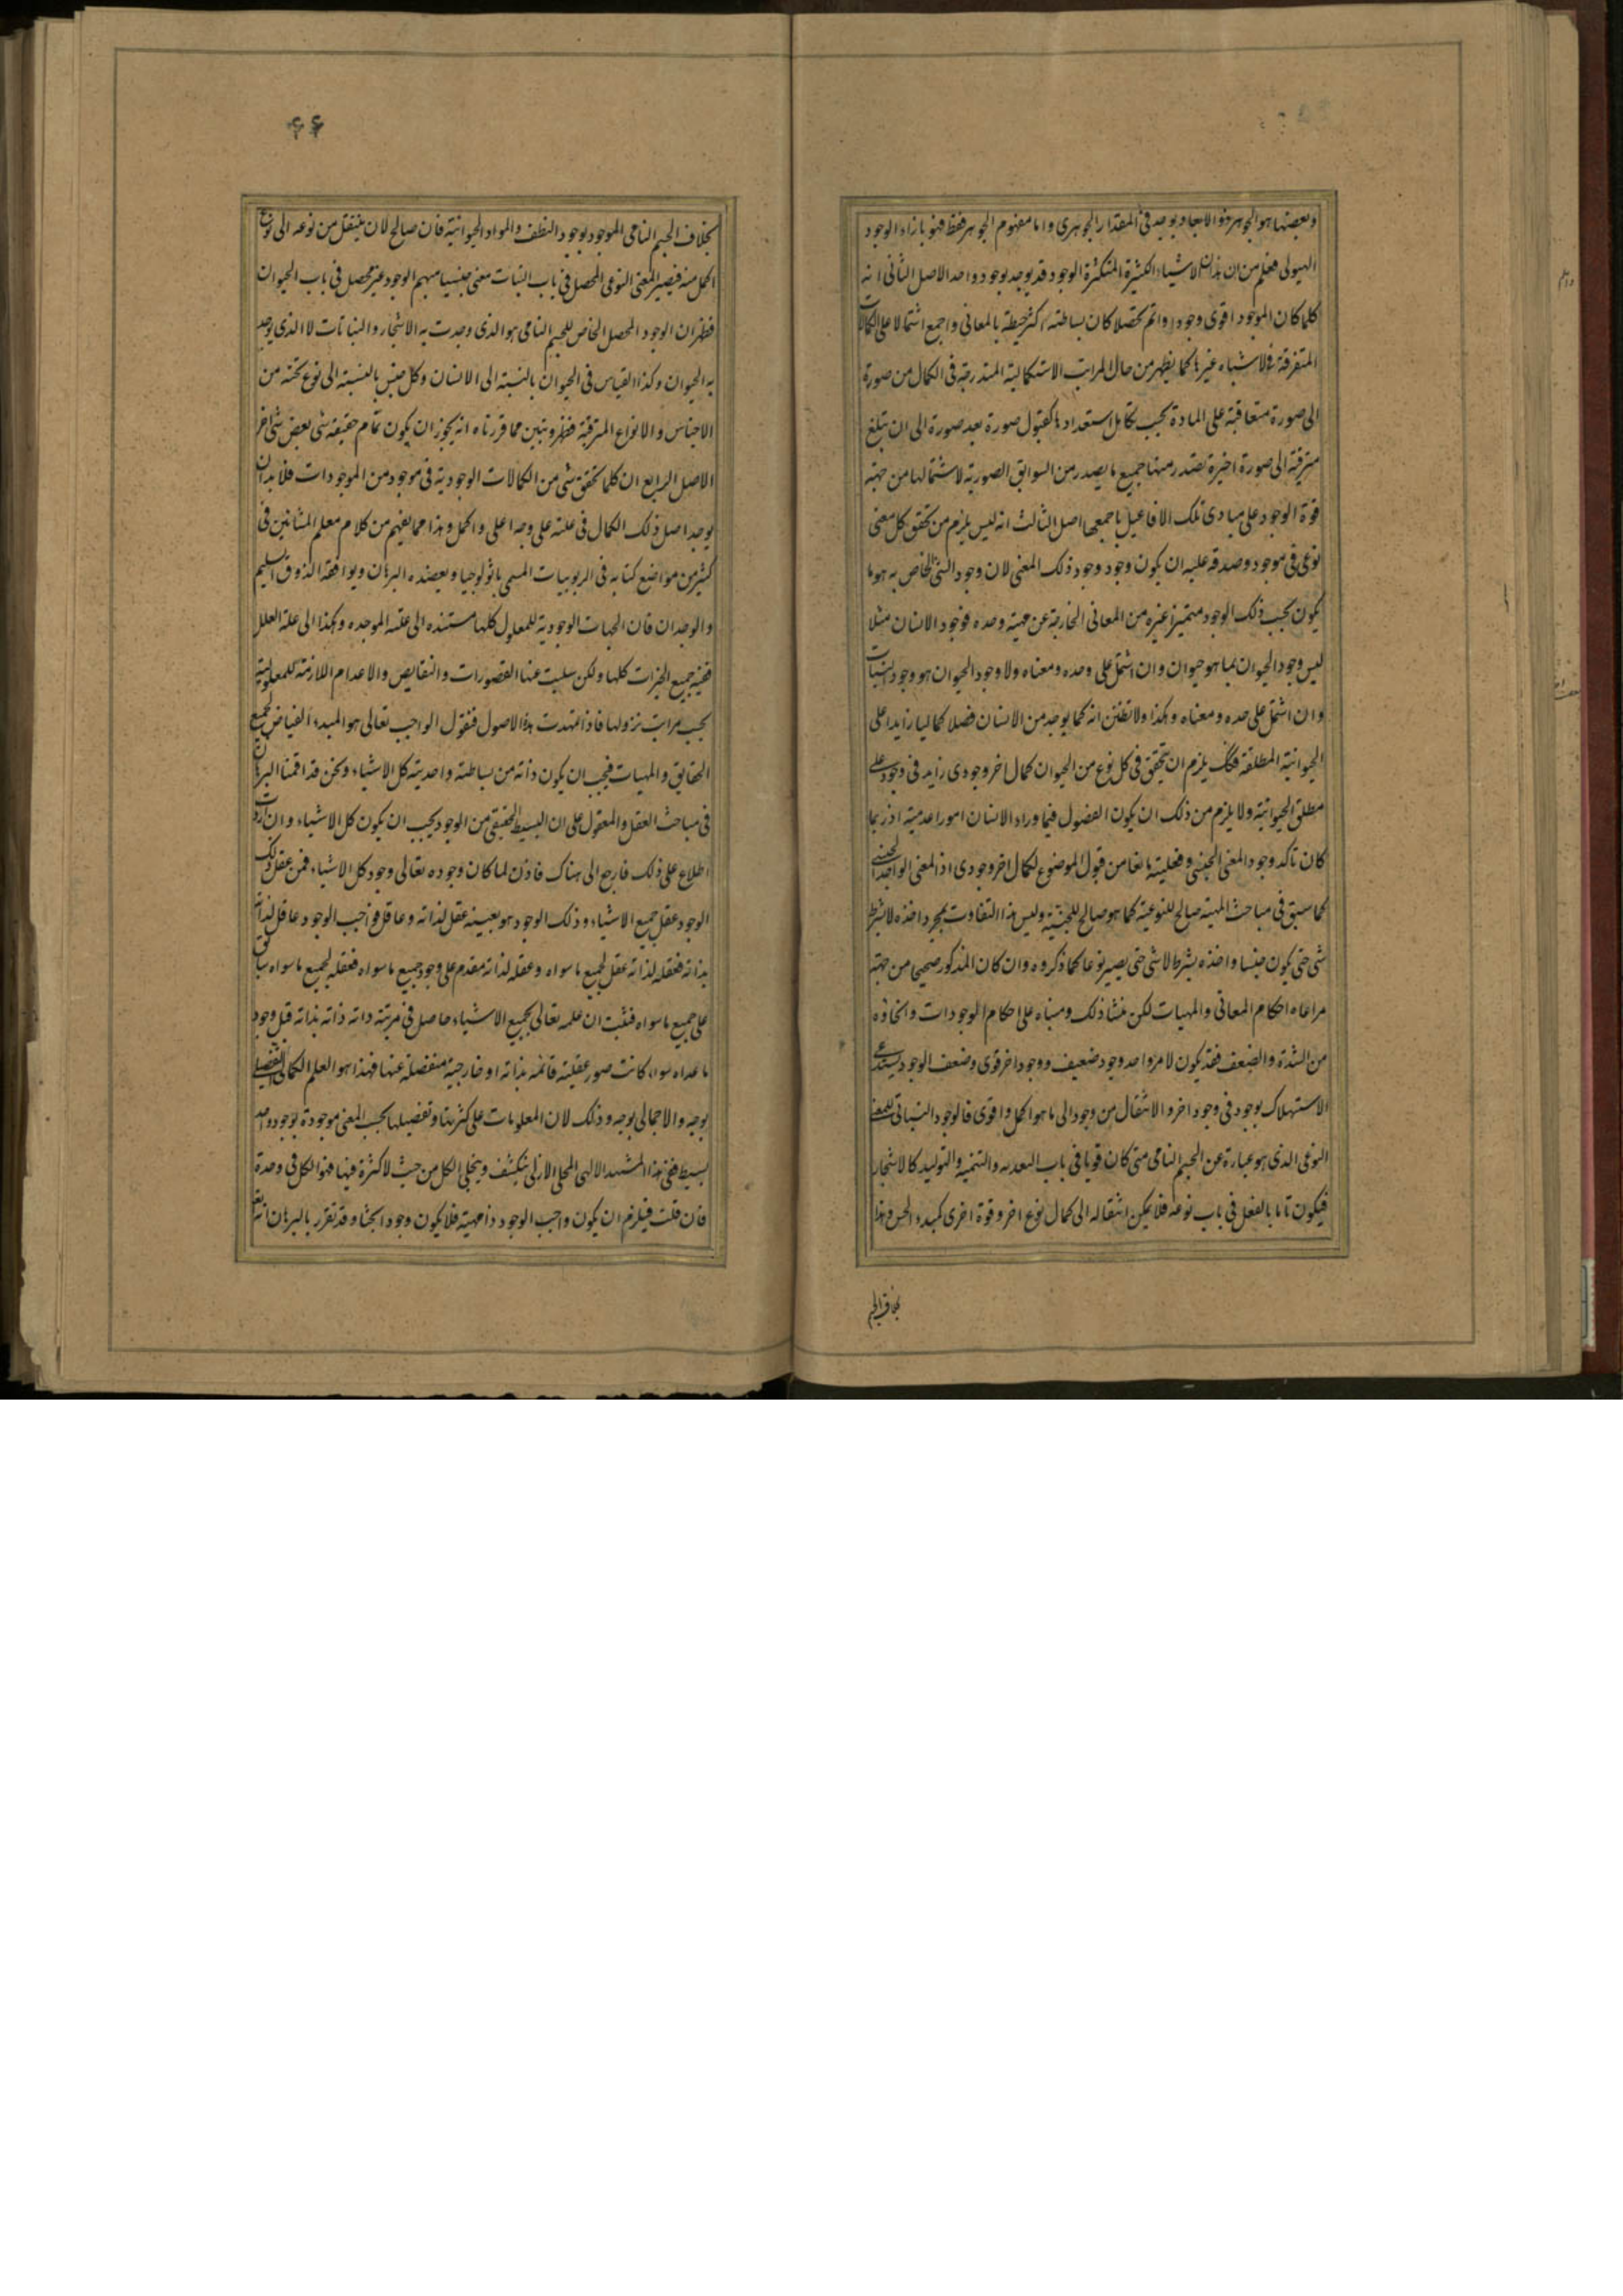 وبعضها هو الجوهر هو الابعاد يوجد فى المقدار الجوهرى واما مفهوم الجوهر فقط فهو بازاء الوجود
الهيولى فعلم من ان هذه الاشياء الكثيرة المتكثرة الوجود قد يوجد بوجود واحد الاصل الثانى انه
كلما كان الموجود اقوى وجودا واتم تحصلا كان بساطته اكثر حيطة بالمعانى واجمع اشتمالا على الكمالات
المتفرقة فى الاشياء غيرها كما يظهر من حال المراتب الاستكمالية المتدرجة فى الكمال من صورة
الى صورة متعاقبة على المادة بحسب تكامل استعدادها كقبول صورة بعد صورة الى ان تبلغ
مترقية الى صورة اخيرة تصدر منها جميع ما يصدر من السوابق الصورية لاشتمالها من جهة
قوة الوجود على مبادى تلك الافاعيل باجمعها اصل الثالث انه ليس يلزم من تحقق كل معنى
نوعى فى موجود وصدقه عليه ان يكون وجود وجود ذلك المعنى لان وجود الشئ الخاص به هو ما
يكون بحسب ذلك الوجود متميزا عن غيره من المعانى الخارجة عن مهيته وحده فوجود الانسان مثلا
ليس وجود الحيوان بما هو حيوان وان اشتمل على وحده ومعناه ولا وجود الحيوان هو وجود النبات
وان اشتمل على حده ومعناه وهكذا ولا تظنن انه كما يوجد من الانسان فضلا كماليا زايدا على
الحيوانية المطلقة فكك يلزم ان يتحقق فى كل نوع من الحيوان كمال اخر وجودى زايد فى وجوده على
مطلق الحيوانية ولا يلزم من ذلك ان يكون الفصول فيما وراء الانسان امورا عدمية اذ ربما
كان تاكد وجود المعنى الجنسى وفعليته مانعا من قبول الموضوع لكمال اخر وجودى اذ المعنى الواحد الجنسى
كما سبق فى مباحث المهية صالح للنوعية كما هو صالح للجنسية وليس هذا التفاوت بمجرد اخذه لا بشرط
شى حتى يكون جنسا واخذه بشرط لا شى حتى يصير نوعا كما ذكروه وان كان المذكور صحيحا من جهة
مراعاه احكام المعانى والمهيات لكن منشا ذلك ومبناه على احكام الوجودات وانحاؤه
من الشدة والضعف فقد يكون لامر واحد وجود ضعيف ووجود اخر قوى وضعف الوجود يستدعى
الاستهلاك بوجود فى وجود اخر والانتقال من وجود الى ما هو اكمل واقوى فالوجود النباتى للمعنى
النوعى الذى هو عبارة عن الجسم النامى متى كان قويا فى باب التغديه والتنمية والتوليد كالاشجار
فيكون تاما بالفعل فى باب نوعه فلا يمكن انتقاله الى كمال نوع اخر وقوة اخرى كمبدء الحس وهذا
بخلاف الجسم
۶۶
بخلاف الجسم النامى الموجود بوجود النطف والمواد الحيوانية فان صالح لان ينتقل من نوعه الى نوع
اكمل منه فيصير المعنى النوعى المحصل فى باب النبات معنى جنسيا مبهم الوجود غير محصل فى باب الحيوان
فظهر ان الوجود المحصل الخاص للجسم النامى هو الذى وجدت به الاشجار والنباتات لا الذى يوجد
به الحيوان وكذا القياس فى الحيوان بالنسبة الى الانسان وكل جنس بالنسبة الى نوع تحته من
الاجناس والانواع المترقية فظهر وتبين مما قررناه انه يجوز ان يكون تمام حقيقة شئ بعض شئ اخر
الاصل الرابع ان كلما تحقق شئ من الكمالات الوجودية فى موجود من الموجودات فلا بد ان
يوجد اصل ذلك الكمال فى علته على وجه اعلى واكمل وهذا مما يفهم من كلام معلم المشائين فى
كثير من مواضع كتابه فى الربوبيات المسمى باثولوجيا ويعضده البرهان ويوافقه الذوق السليم
والوجدان فان الجهات الوجودية للمعلول كلها مستنده الى علته الموجده وهكذا الى علة العلل
ففيه جميع الخيرات كلها ولكن سلبت عنها القصورات والنقايص والاعدام اللازمة للمعلولية
بحسب مراتب نزولها فاذا تمهدت هذه الاصول فنقول الواجب تعالى هو المبدء الفياض لجميع
الحقايق والمهيات فيجب ان يكون ذاته من بساطته واحديته كل الاشياء ونحن قد اقمنا البرهان
فى مباحث العقل والمعقول على ان البسيط الحقيقى من الوجود يجب ان يكون كل الاشياء وان اردت
اطلاع على ذلك فارجع الى هناك فاذن لما كان وجوده تعالى وجود كل الاشياء فمن عقل ذلك
الوجود عقل جميع الاشياء وذلك الوجود هو بعينه عقل لذاته وعاقل فواجب الوجود عاقل لذاته
بذاته فعقله لذاته عقل لجميع ما سواه وعقله لذاته مقدم على وجود جميع ما سواه فعقله لجميع ما سواه سابق
على جميع ما سواه فثبت ان علمه تعالى بجميع الاشياء حاصل فى مرتبة داته ذاته بذاته قبل وجود
ما عداه سواء كانت صور عقلية قائمه بذاته او خارجية منفصلة عنها فهذا هو العلم الكمالى التفصيلى
بوجه والاجمالى بوجه وذلك لان المعلومات على كثرتها وتفصيلها بحسب المعنى موجودة بوجود واحد
بسيط ففى هذا المشهد الالهى المجلى الازلى ينكشف وينجلى الكل من حيث لا كثرة فيها فهو الكل فى وحدة
فان قلت فيلزم ان يكون واجب الوجود ذا مهية فلا يكون وجودا بحتا وقد تقرر بالبرهان انه تعالى